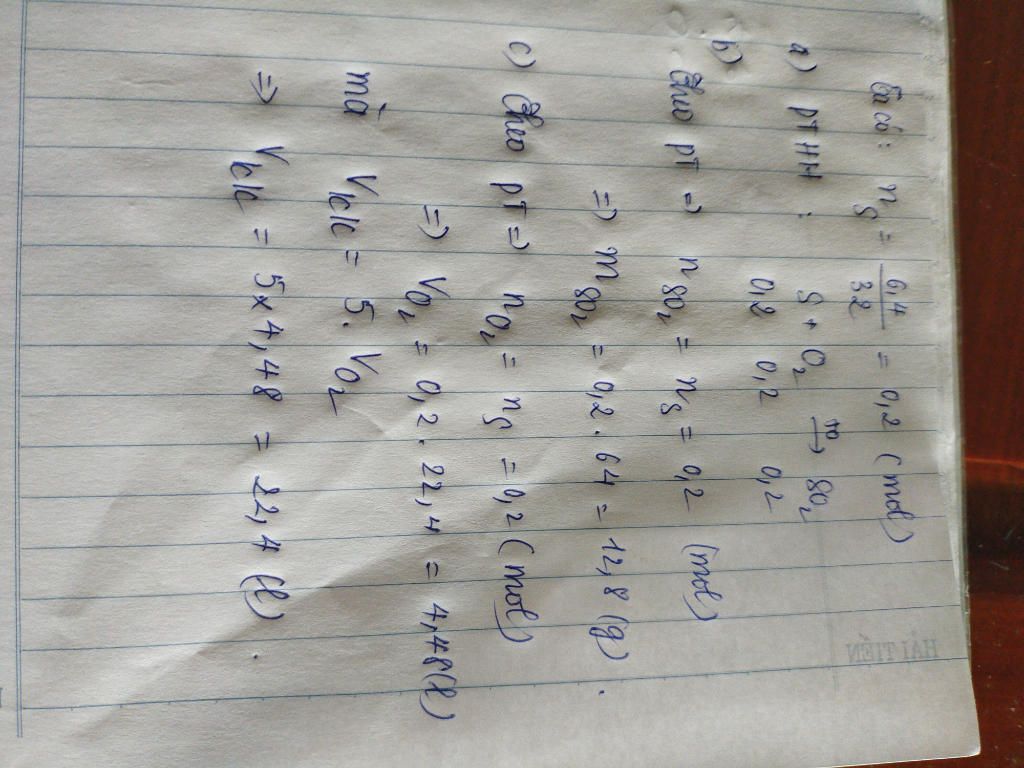 Ta có: nS = 6,4/32 = 0,2 (mol)
a) PTHH : S + O2 t0→ SO2
0,2 0,2 0,2
b)
Theo PT => nSO2 = nS = 0,2 (mol)
=> mSO2 = 0,2 . 64 = 12,8 (g) .
c) Theo PT => nO2 = nS = 0,2 (mol)
=> VO2 = 0,2 . 22,4 = 4,48 (l)
mà Vkk = 5 . VO2
=> Vkk = 5 x 4,48 = 22,4 (l) .
HẢI TIẾN